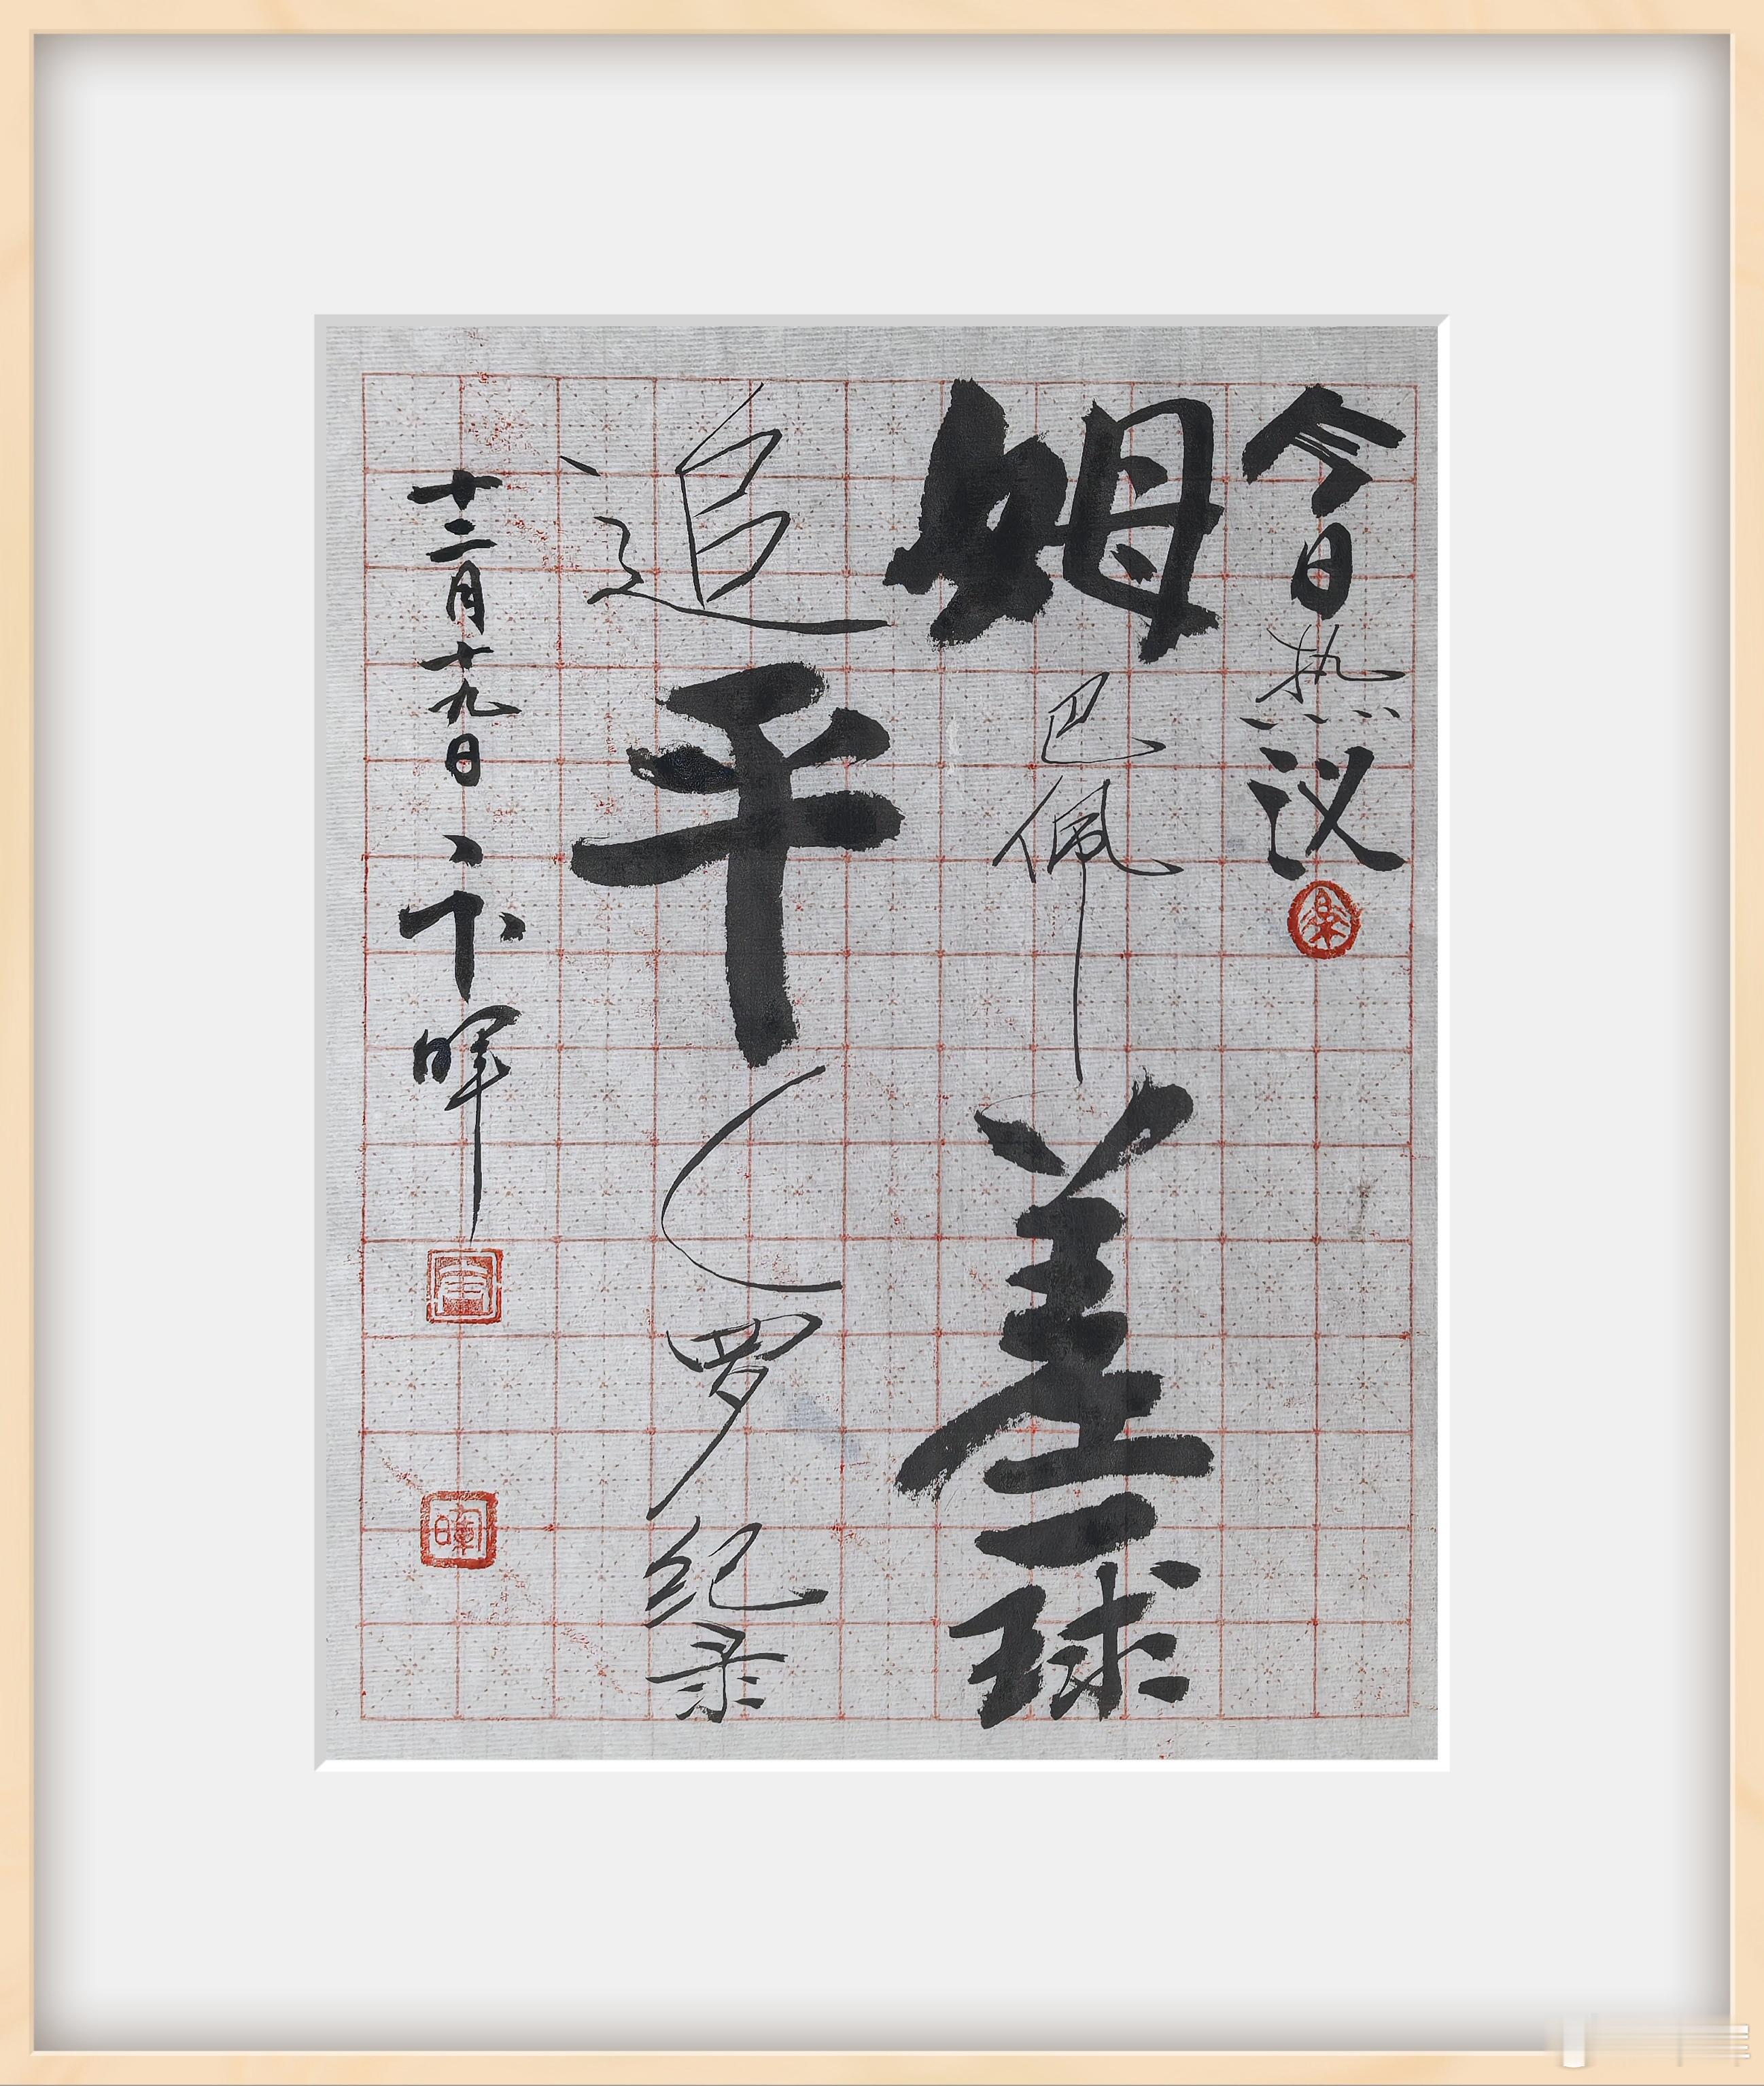 今日热议
姆巴佩差一球
追平C罗纪录
十二月十九日 卞晖
暉